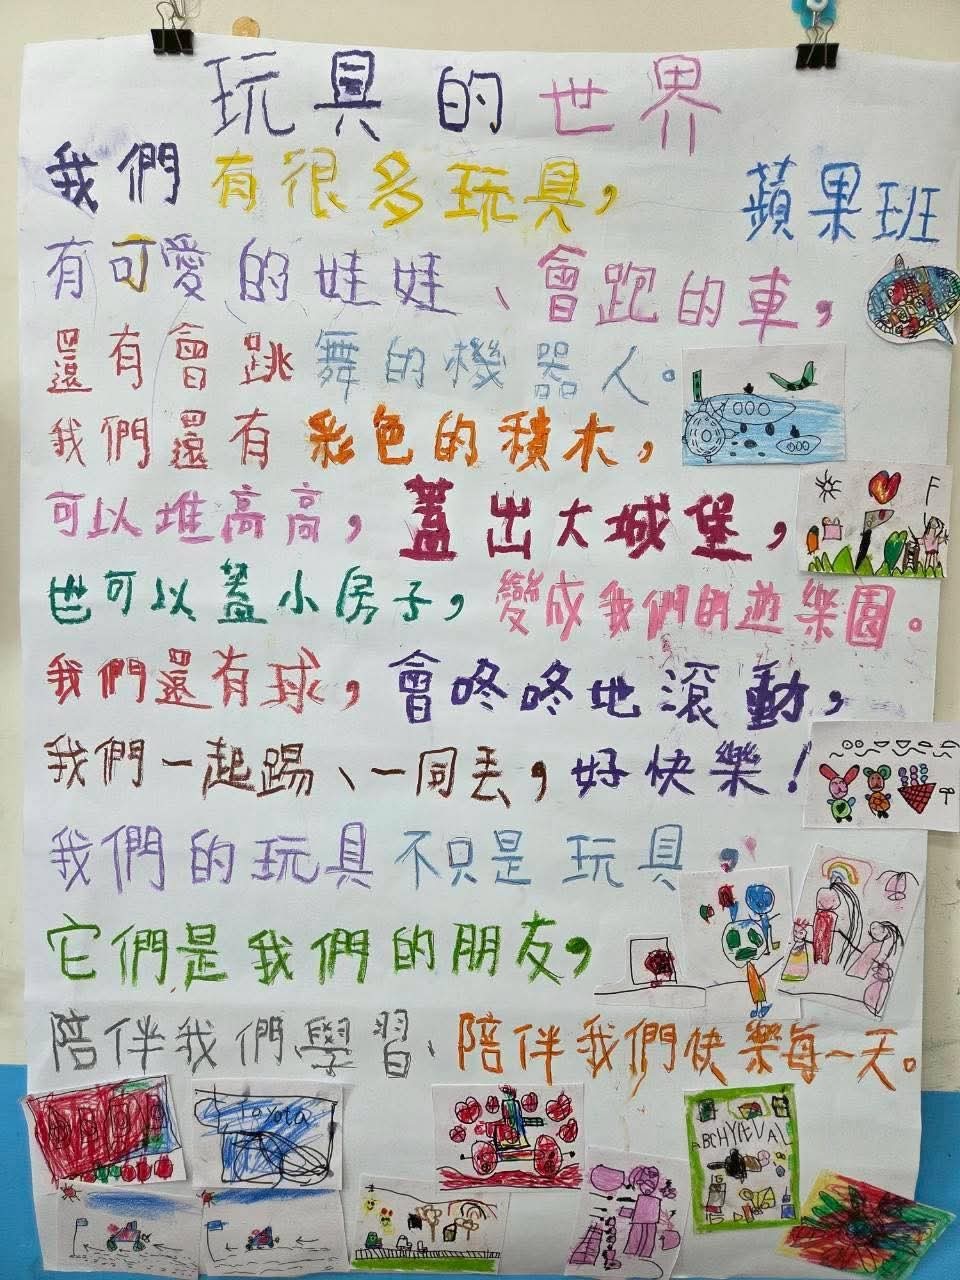 玩具的世界
我們有很多玩具，
蘋果班
有可愛的娃娃、會跑的車，
還有會跳舞的機器人。
我們還有彩色的積木，
可以堆高高，蓋出大城堡，
也可以蓋小房子，變成我們的遊樂園。
我們還有球，會咚咚地滾動，
我們一起踢、一同丟，好快樂！
我們的玩具不只是玩具，
它們是我們的朋友，
陪伴我們學習、陪伴我們快樂每一天。
Toyota